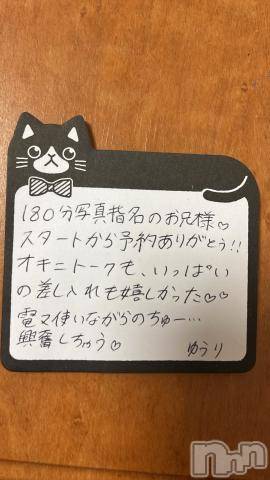 180分写真指名のお兄様♡
スタートから予約ありがとう!!
オキニトークも、いっぱい
の差し入れも嬉しかった♡♡
電マ使いながらのちゅー…
興奮しちゃう♡
ゆうり